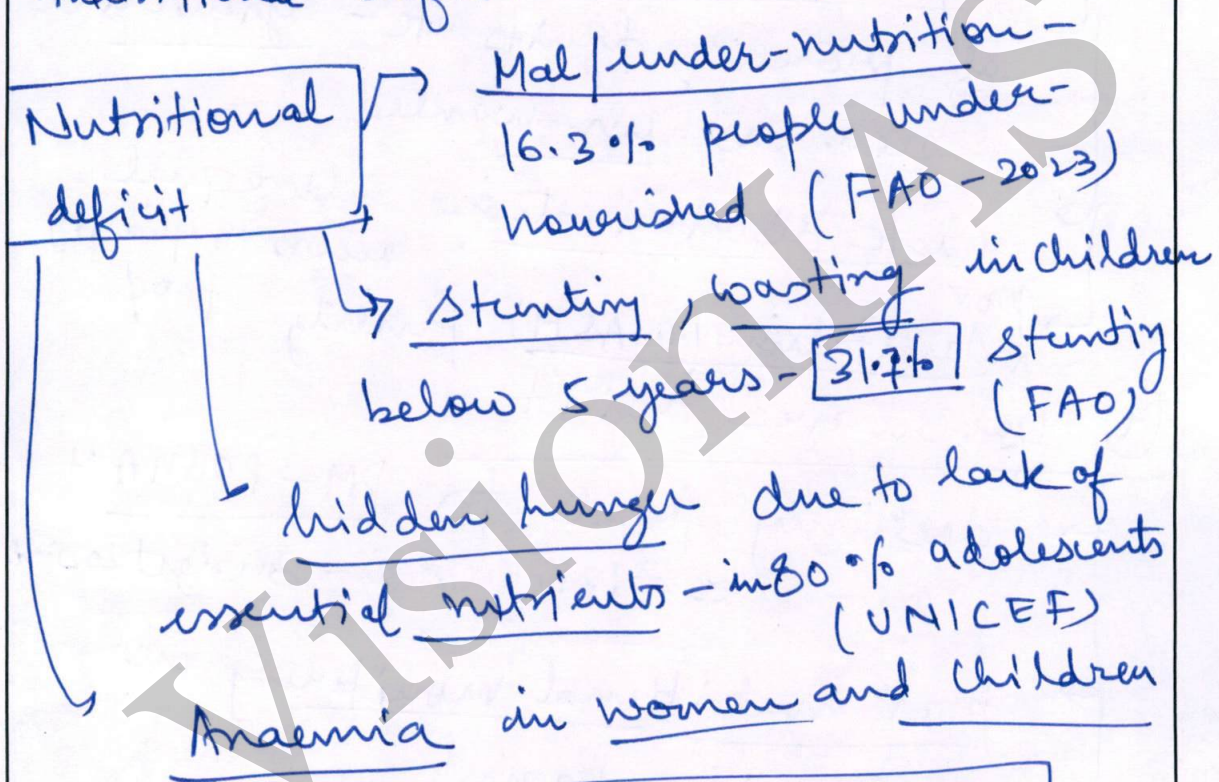 Nutritional
deficit
Mal/under-nutrition -
16.3% people under-
nourished (FAO - 2023)
stunting, wasting in children
below 5 years - 31.7% stunting
(FAO)
hidden hunger due to lack of
essential nutrients - in 80% adolescents
(UNICEF)
Anaemia in women and children
VisionIAS